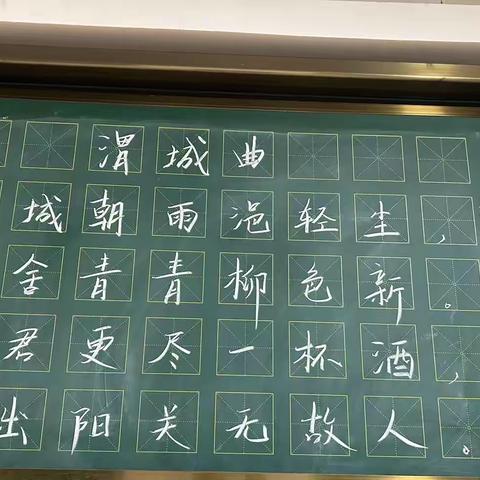 渭城曲
城朝雨浥轻尘，
舍青青柳色新。
君更尽一杯酒，
出阳关无故人。